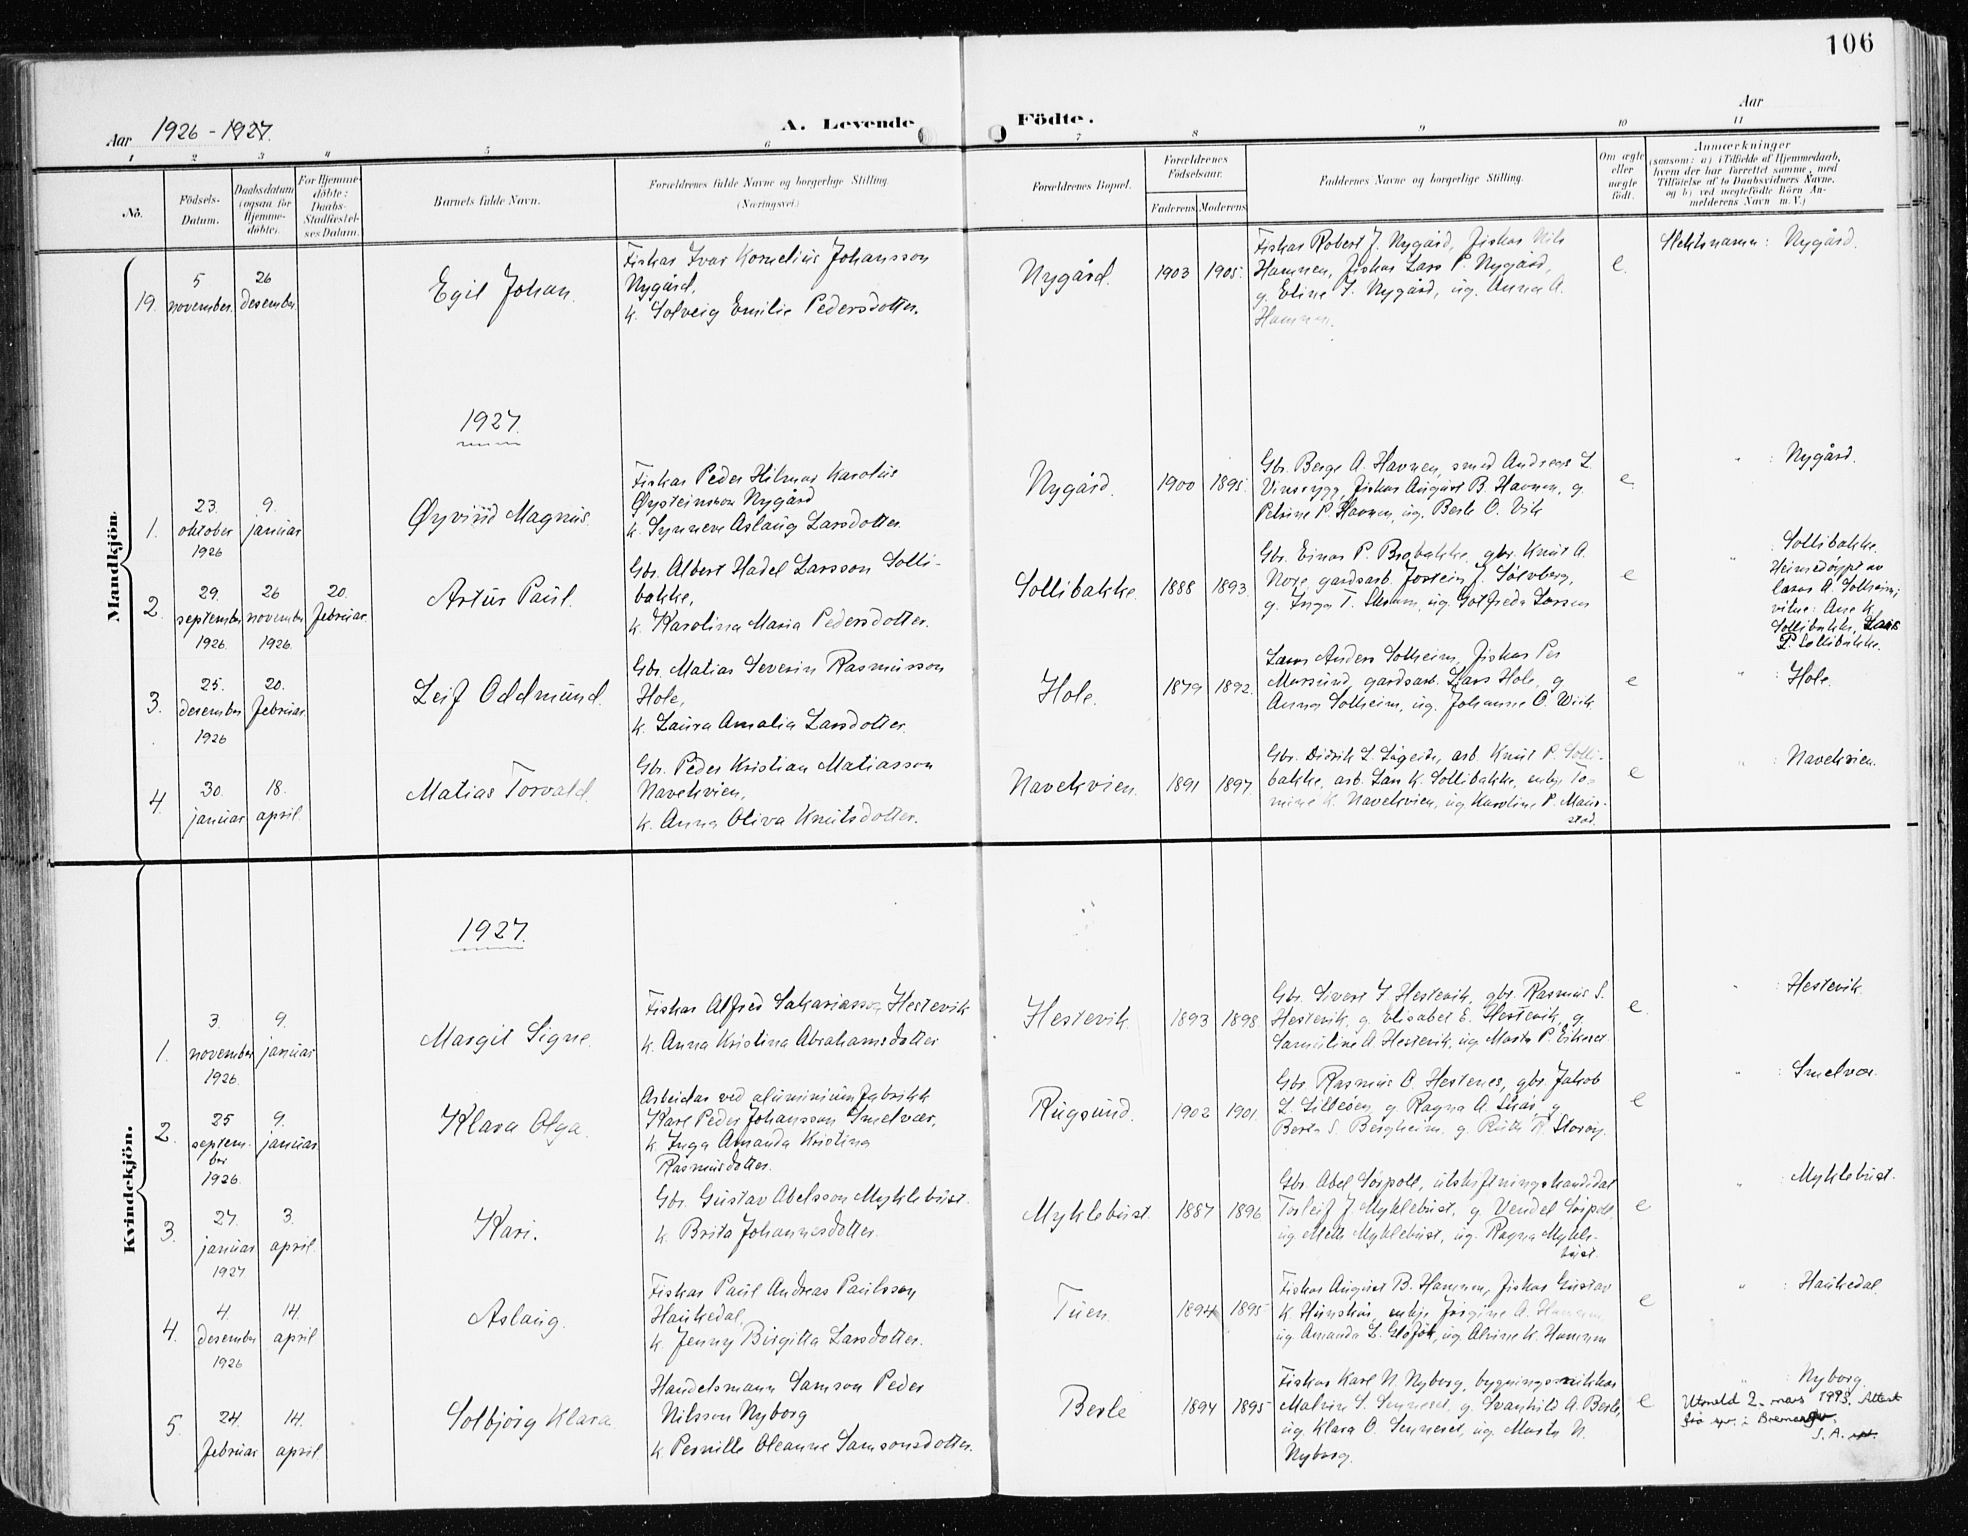 106
Aar 1926 - 1927.
A. Levende Födte.
Aar
1 2 3 4 5 6 7 8 9 10 11
No.
Födsels-
Datum.
Daabsdatum
(ogsaa for
Hjemme-
döbte).
For Hjemme-
döbte:
Daabs-
Stadfæstel-
ses Datum.
Barnets fulde Navn.
Forældrenes fulde Navne og borgerlige Stilling.
(Næringsvei.)
Forældrenes Bopæl.
Forældrenes
Födselsaar.
Faderens Moderens
Faddernes Navne og borgerlige Stilling.
Om ægte
eller
uægte
födt.
Anmærkninger
(saasom: a) i Tilfælde af Hjemmedaab,
hvem der har forrettet samme, med
Tilföielse af to Daabsvidners Navne,
og b) ved uægtefödte Börn An-
melderens Navn m. V.)
Mandkjön.
19.
5
november.
26
desember.
Egil Johan.
Fiskar Ivar Kornelius Johansson
Nygård,
k. Solveig Emilie Pedersdotter.
Nygård.
1903 1905.
Fiskar Robert J. Nygård, fiskar Nils
Hamnen, fiskar Lars P. Nygård,
g. Eline J. Nygård, ug. Anna A.
Hamnen.
e.
Slektsnamn: Nygård.
1927.
1.
23.
oktober
1926
9.
januar
Øyvind Magnus.
Fiskar Peder Hilmar Karolus
Øysteinson Nygård
k. Synneve Aslaug Larsdotter.
Nygård.
1900 1895.
Gbr. Berge A. Havnen, smed Andreas L.
Vinsrygg, fiskar August B. Havnen, g.
Petrine P. Havnen, ug. Berle O. Vik
e.
" : Nygård.
2.
29.
september
1926.
26
november
1926.
20.
februar.
Artur Paul.
Gbr. Albert Hadel Larsson Solli-
bakke,
k. Karolina Maria Pedersdotter.
Sollibakke.
1888 1893.
Gbr. Einar P. Brobakke, gbr. Knut A.
Nore, gardsarb. Jostein J. Sølvberg,
g. Inga T. Skram, ug. Gotfreda Larsen
e
: Sollibakke.
Heimedøypt av
lærar A. Solheim;
vitne: Ane K.
Sollibakke, Lars
P. Sollibakke.
3.
25.
desember
1926
20.
februar.
Leif Oddmund.
Gbr. Matias Severin Rasmusson
Hole,
k. Laura Amalia Larsdotter.
Hole.
1879 1892.
Lærar Anders Solheim, fiskar Per
Mursund, gardsarb. Lars Hole, g
Anna Solheim, ug. Johanne O. Wiik
e
" : Hole.
4.
30.
januar
18.
april.
Matias Torvald.
Gbr. Peder Kristian Matiasson
Navekvien,
k. Anna Oliva Knutsdotter.
Navekvien.
1891 1897.
Gbr. Didrik L. arb. Knut P. Solli-
bakke, arb. Lars K. Sollibakke, enkje
K. Navekvien, ug Karoline P. Maur-
stad.
e
" : Navekvien.
Kvindekjön.
1927.
1.
3.
november
1926.
9.
januar
Margit Signe.
Fiskar Alfred Sakariasson Hestevik
k. Anna Kristina Abrahamsdotter
Hestevik
1893 1898.
Gbr. Sivert J. Hestevik, gbr. Rasmus S.
Hestevik, g. Elisabet E. Hestevik, g.
Samuline A. Hestevik, ug. Marta P. Eikeset
e.
" : Hestevik
2.
25
septem-
ber
1926.
9.
januar
Klara Olga.
Arbeidar ved aluminiumfabrikk
Karl Peder Johansson Smelvær,
k Inga Amanda Kristina
Rasmusdotter.
Rugsund.
1902 1901.
Gbr. Rasmus O. Hestenes, gbr. Jakob
L. g. Ragna A. g
Berta S. Bergheim, g. Ruth
e
" : Smelvær.
3.
27.
januar
1927
3.
april.
Kari.
Gbr. Gustav Abelsson Myklebust.
k. Brita Johannesdotter.
Myklebust.
1887 1896
Gbr. Abel Sørpoll, utskiftningskandidat
Torleif J Myklebust, g. Vendel Sørpoll,
ug Mette Myklebust, ug. Ragna Mykle-
bust.
e
" : Myklebust.
4.
4.
desember
1926
14.
april
Aslaug.
Fiskar Paul Andreas Paulsson
Haukedal,
k Jenny Birgitta Larsdotter.
Tuen.
1894 1895
Fiskar August B. Hamnen, fiskar Gustav
K. Hunskår, enkje Jørgine A. Hamnen
ug Amanda L. ug Alvine K. Hamnen
e
" : Haukedal.
5.
24.
februar
14.
april
Solbjørg Klara
Handelsmann Samson Peder
Nilsson Nyborg
k Pernille Oleanne Samsonsdotter.
Berle
1894 1895
Fiskar Karl N. Nyborg, bygningssnikkar
Malvin S. Senneset, g. Svanhild A. Berle,
ug. Klara O. Senneset, ug. Marta N.
Nyborg.
e
" : Nyborg.
Utmeld 2. mars 1993. Attest
frå spr. i Bremanger.
S.A.